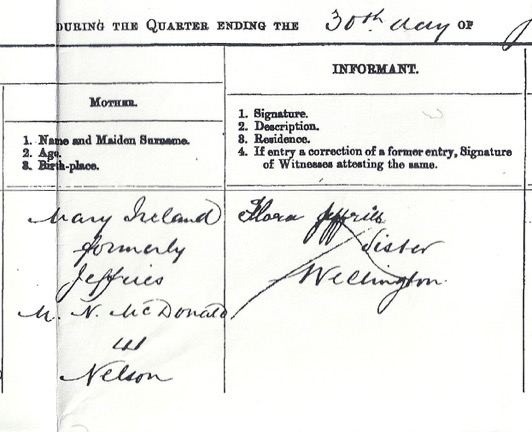 DURING THE QUARTER ENDING THE 30th day OF
MOTHER.
1. Name and Maiden Surname.
2. Age.
3. Birth-place.
INFORMANT.
1. Signature.
2. Description.
3. Residence.
4. If entry a correction of a former entry, Signature
of Witnesses attesting the same.
Mary Ireland
formerly
Jeffries
M. N. McDonald
41
Nelson
Flora Jeffries
Sister
Wellington